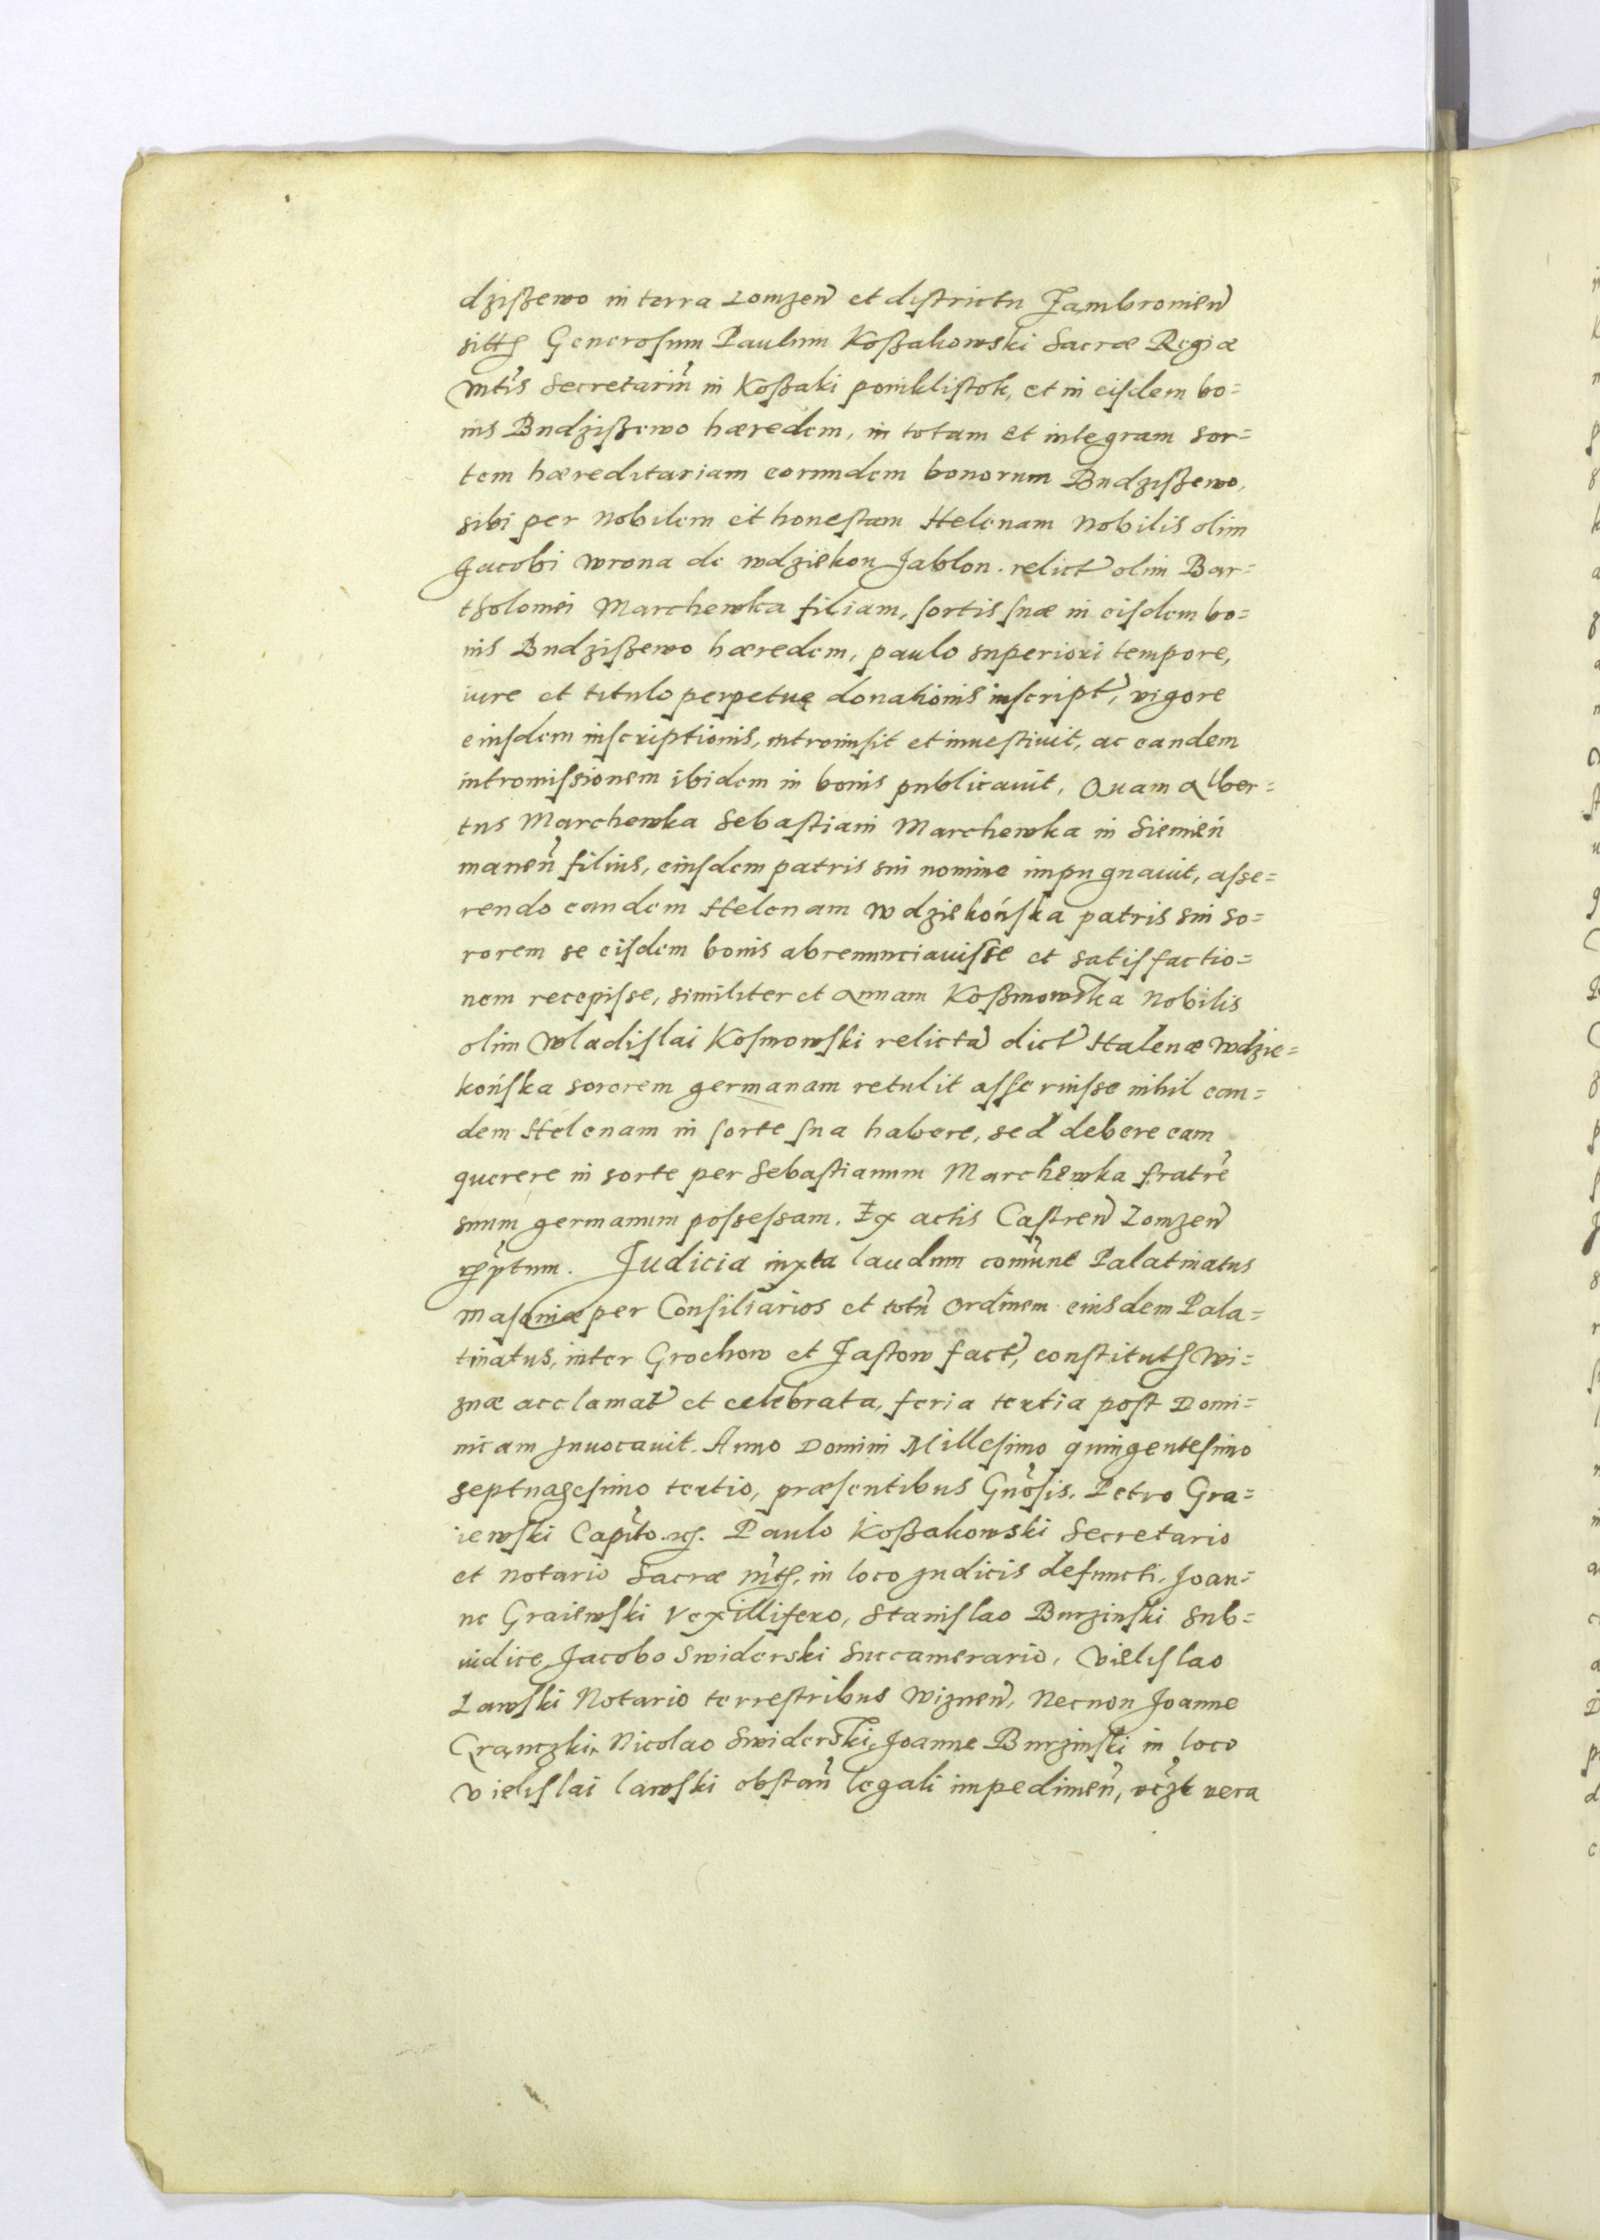 dzißewo in terra Lomzen̄ et districtu Zambronien̄
sitt̄s Generosum Paulum Koßakowski Sacræ Regiæ
Mt̄is Secretariū in Koßaki ponikłistok, et in eisdem bo=
nis Budzißewo hæredem, in totam et integram sor=
tem hæreditariam eorundem bonorum Budzißewo,
sibi per Nobilem et honestam Helenam Nobilis olim
Jacobi Wrona de Wdziekon Jablon. relict̄ olim Bar=
tholomei Marchewka filiam, sortis suæ in eisdem bo=
nis Budzißewo hæredem, paulo superiori tempore,
iure et titulo perpetuę donationis inscript̄, vigore
eiusdem inscriptionis, intromisit et inuestiuit, ac eandem
intromissionem ibidem in bonis publicauit, Quam Alber=
tus Marchewka Sebastiani Marchewka in Siemień
manen̄ filius, eiusdem patris sui nomine impugnauit, asse=
rendo eandem Helenam Wdziekońska patris sui so=
rorem se eisdem bonis abrenunciauisse et satisfactio=
nem recepisse, similiter et Annam Koßmowska Nobilis
olim Wladislai Kosmowski relictā dict̄ Halenæ Wdzie=
końska sororem germanam retulit asseruisse nihil ean=
dem Helenam in sorte sua habere, sed debere eam
querere in sorte per Sebastianum Marchewka fratrē
suum germanum possessam. Ex actis Castren̄ Lomzen̄
rc̄eptum. Judicia iuxta laudum comūne Palatinatus
Masouiæ per Consiliarios et totū ordinem eiusdem Pala=
tinatus, inter Grochow et Jastow fact̄, constitut̄s Wi=
znæ acclamat̄ et celebrata, feria tertia post Domi=
nicam Inuocauit. Anno Domini Millesimo quingentesimo
septuagesimo tertio, præsentibus Gn̄osis. Petro Gra=
iewski Capit̄o. ib. Paulo Koßakowski Secretario
et Notario Sacræ Mt̄s, in loco Judicis defuncti, Joan=
ne Graiewski Vexillifero, Stanislao Burzinski Sub=
iudice, Jacobo Swiderski Succamerario, Vielislao
Lawski Notario terrestribus Wiznen̄, Necnon Joanne
Cranczki, Nicolao Swiderski, Joanne Burzinski in loco
Vielislai Lawski obstan̄ legali impedimen̄, vera